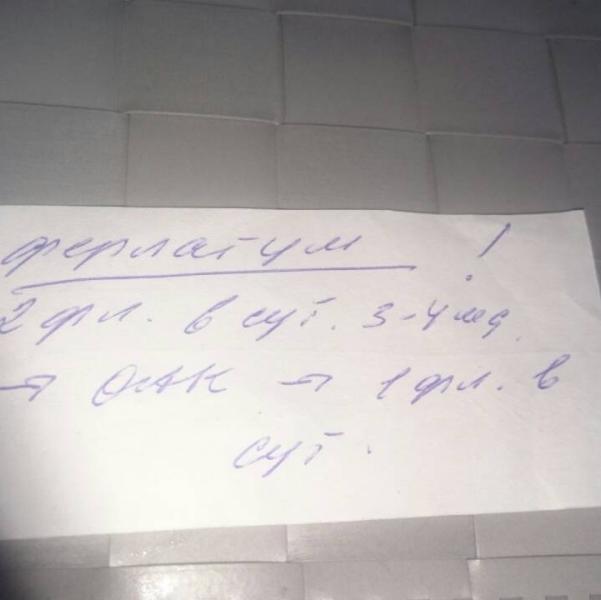 ферлатум !
2 фл. в сут. 3-4 мд.
→ ОАК → 1 фл. в
сут.